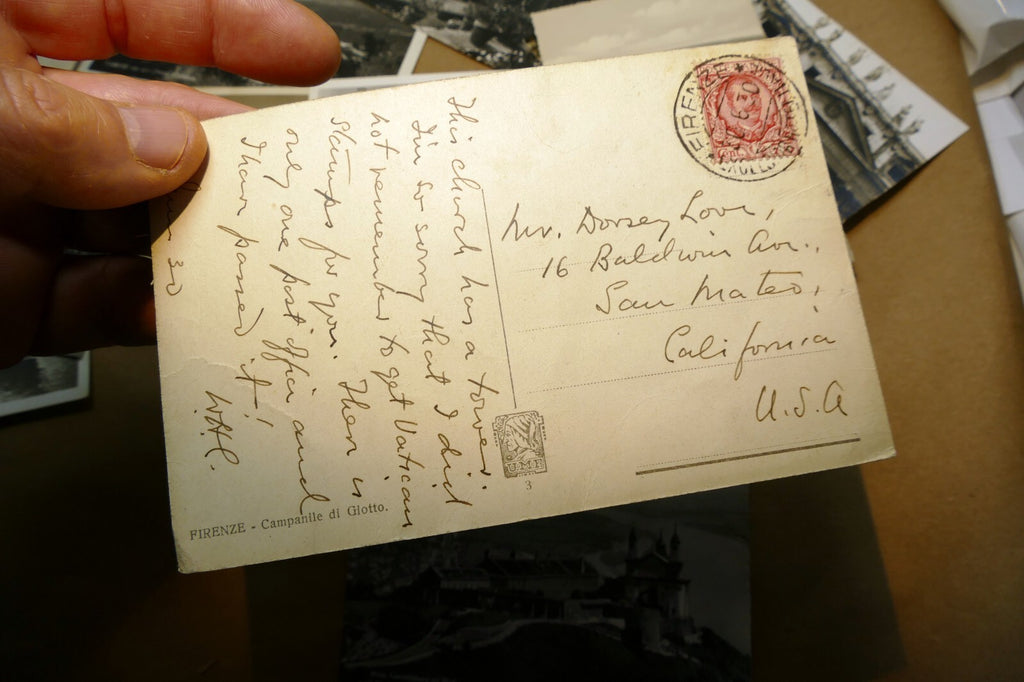 30
This church has a tower.
I'm so sorry that I did
not remember to get Vatican
stamps for you. There is
only one post office and
I have passed it!
W.H.C.
Mr. Dorsey Love,
16 Baldwin Ave.,
San Mateo,
California
U.S.A
FIRENZE
3
FIRENZE - Campanile di Giotto.